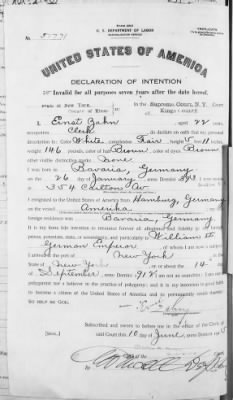 U. S. DEPARTMENT OF LABOR
UNITED STATES OF AMERICA
DECLARATION OF INTENTION
Invalid for all purposes seven years after the date hereof.
State of New York,
In the Supreme Court, N. Y.
County of Kings
Kings County
I, Ernst Zahn, aged 22 years,
occupation Clerk, do declare on oath that my personal
description is: Color White, complexion Fair, height 5 feet 11 inches,
weight 146 pounds, color of hair Brown, color of eyes Brown
other visible distinctive marks None
I was born in Bavaria, Germany
on the 26 day of January, anno Domini 1893
354 Carlton Av
I emigrated to the United States of America from Hamburg, Germany
on the vessel Amerika
foreign residence was Bavaria, Germany
It is my bona fide intention to renounce forever all allegiance and fidelity to any foreign
prince, potentate, state, or sovereignty, and particularly to William II
German Emperor, of whom I am now a subject;
I arrived at the port of New York, in the
State of New York, on or about the 14 day
of September, anno Domini 1912; I am not an anarchist; I am not a
polygamist nor a believer in the practice of polygamy; and it is my intention in good faith
to become a citizen of the United States of America and to permanently reside therein:
SO HELP ME GOD.
Subscribed and sworn to before me in the office of the Clerk of
said Court this 10 day of June, anno Domini
[SEAL]